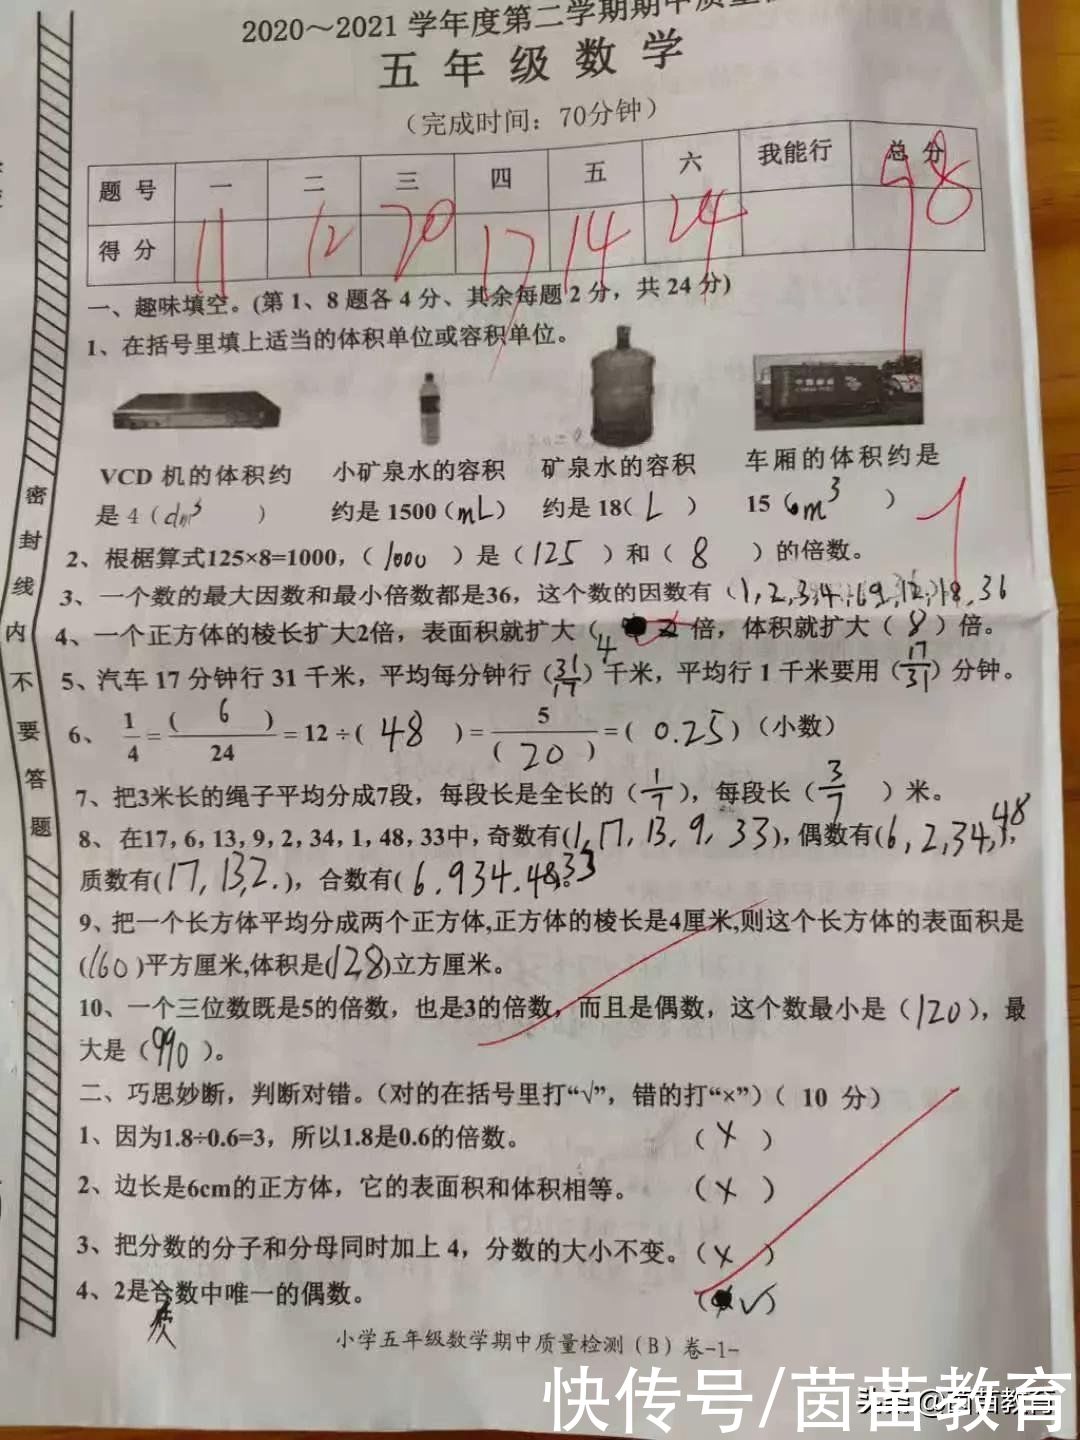 2020～2021 学年度第二学期期中质量
五 年 级 数 学
（完成时间：70分钟）
题 号 一 二 三 四 五 六 我能行 总 分
得 分 11 12 20 17 14 24 98
一、趣味填空。(第 1、8 题各 4 分、其余每题 2 分，共 24 分)
1、在括号里填上适当的体积单位或容积单位。
VCD 机的体积约 小矿泉水的容积 矿泉水的容积 车厢的体积约是
是 4（dm³ ） 约是 1500（mL） 约是 18( L ) 15（m³ ）
2、根椐算式125×8=1000，（ 1000 ）是（ 125 ）和（ 8 ）的倍数。
3、一个数的最大因数和最小倍数都是36，这个数的因数有（1, 2, 3, 4, 6, 9, 12, 18, 36
4、一个正方体的棱长扩大2倍，表面积就扩大（ 4 倍，体积就扩大（ 8 ）倍。
5、汽车 17 分钟行 31 千米，平均每分钟行（31/17）千米，平均行 1 千米要用（17/31）分钟。
6、 1/4 = ( 6 )/24 = 12 ÷ ( 48 ) = 5/( 20 ) = ( 0.25 )（小数）
7、把3米长的绳子平均分成7段，每段长是全长的（1/7），每段长（3/7 ）米。
8、在17, 6, 13, 9, 2, 34, 1, 48, 33中, 奇数有(1, 17, 13, 9, 33), 偶数有(6, 2, 34, 48),
质数有(17, 13, 2. )，合数有( 6. 9 34. 48. 33
9、把一个长方体平均分成两个正方体,正方体的棱长是4厘米,则这个长方体的表面积是
(160 )平方厘米,体积是(128)立方厘米。
10、一个三位数既是5的倍数，也是3的倍数，而且是偶数，这个数最小是（120），最
大是（990 ）。
二、巧思妙断，判断对错。（对的在括号里打“√”，错的打“×”）（ 10 分）
1、因为1.8÷0.6=3，所以1.8是0.6的倍数。 （ × ）
2、边长是6cm的正方体，它的表面积和体积相等。 （ × ）
3、把分数的分子和分母同时加上 4，分数的大小不变。（ × ）
4、2是合数中唯一的偶数。 （ √）
质
小学五年级数学期中质量检测（B）卷-1-
密封线内不要答题
快传号/茵苗教育
头条 @茵苗教育